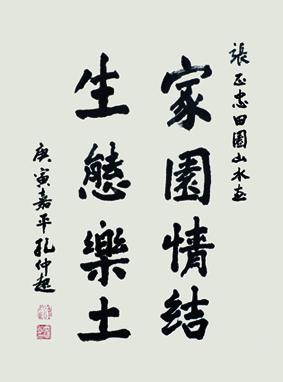 張正忠田園山水畫
家園情结
生態樂土
庚寅嘉平孔仲起